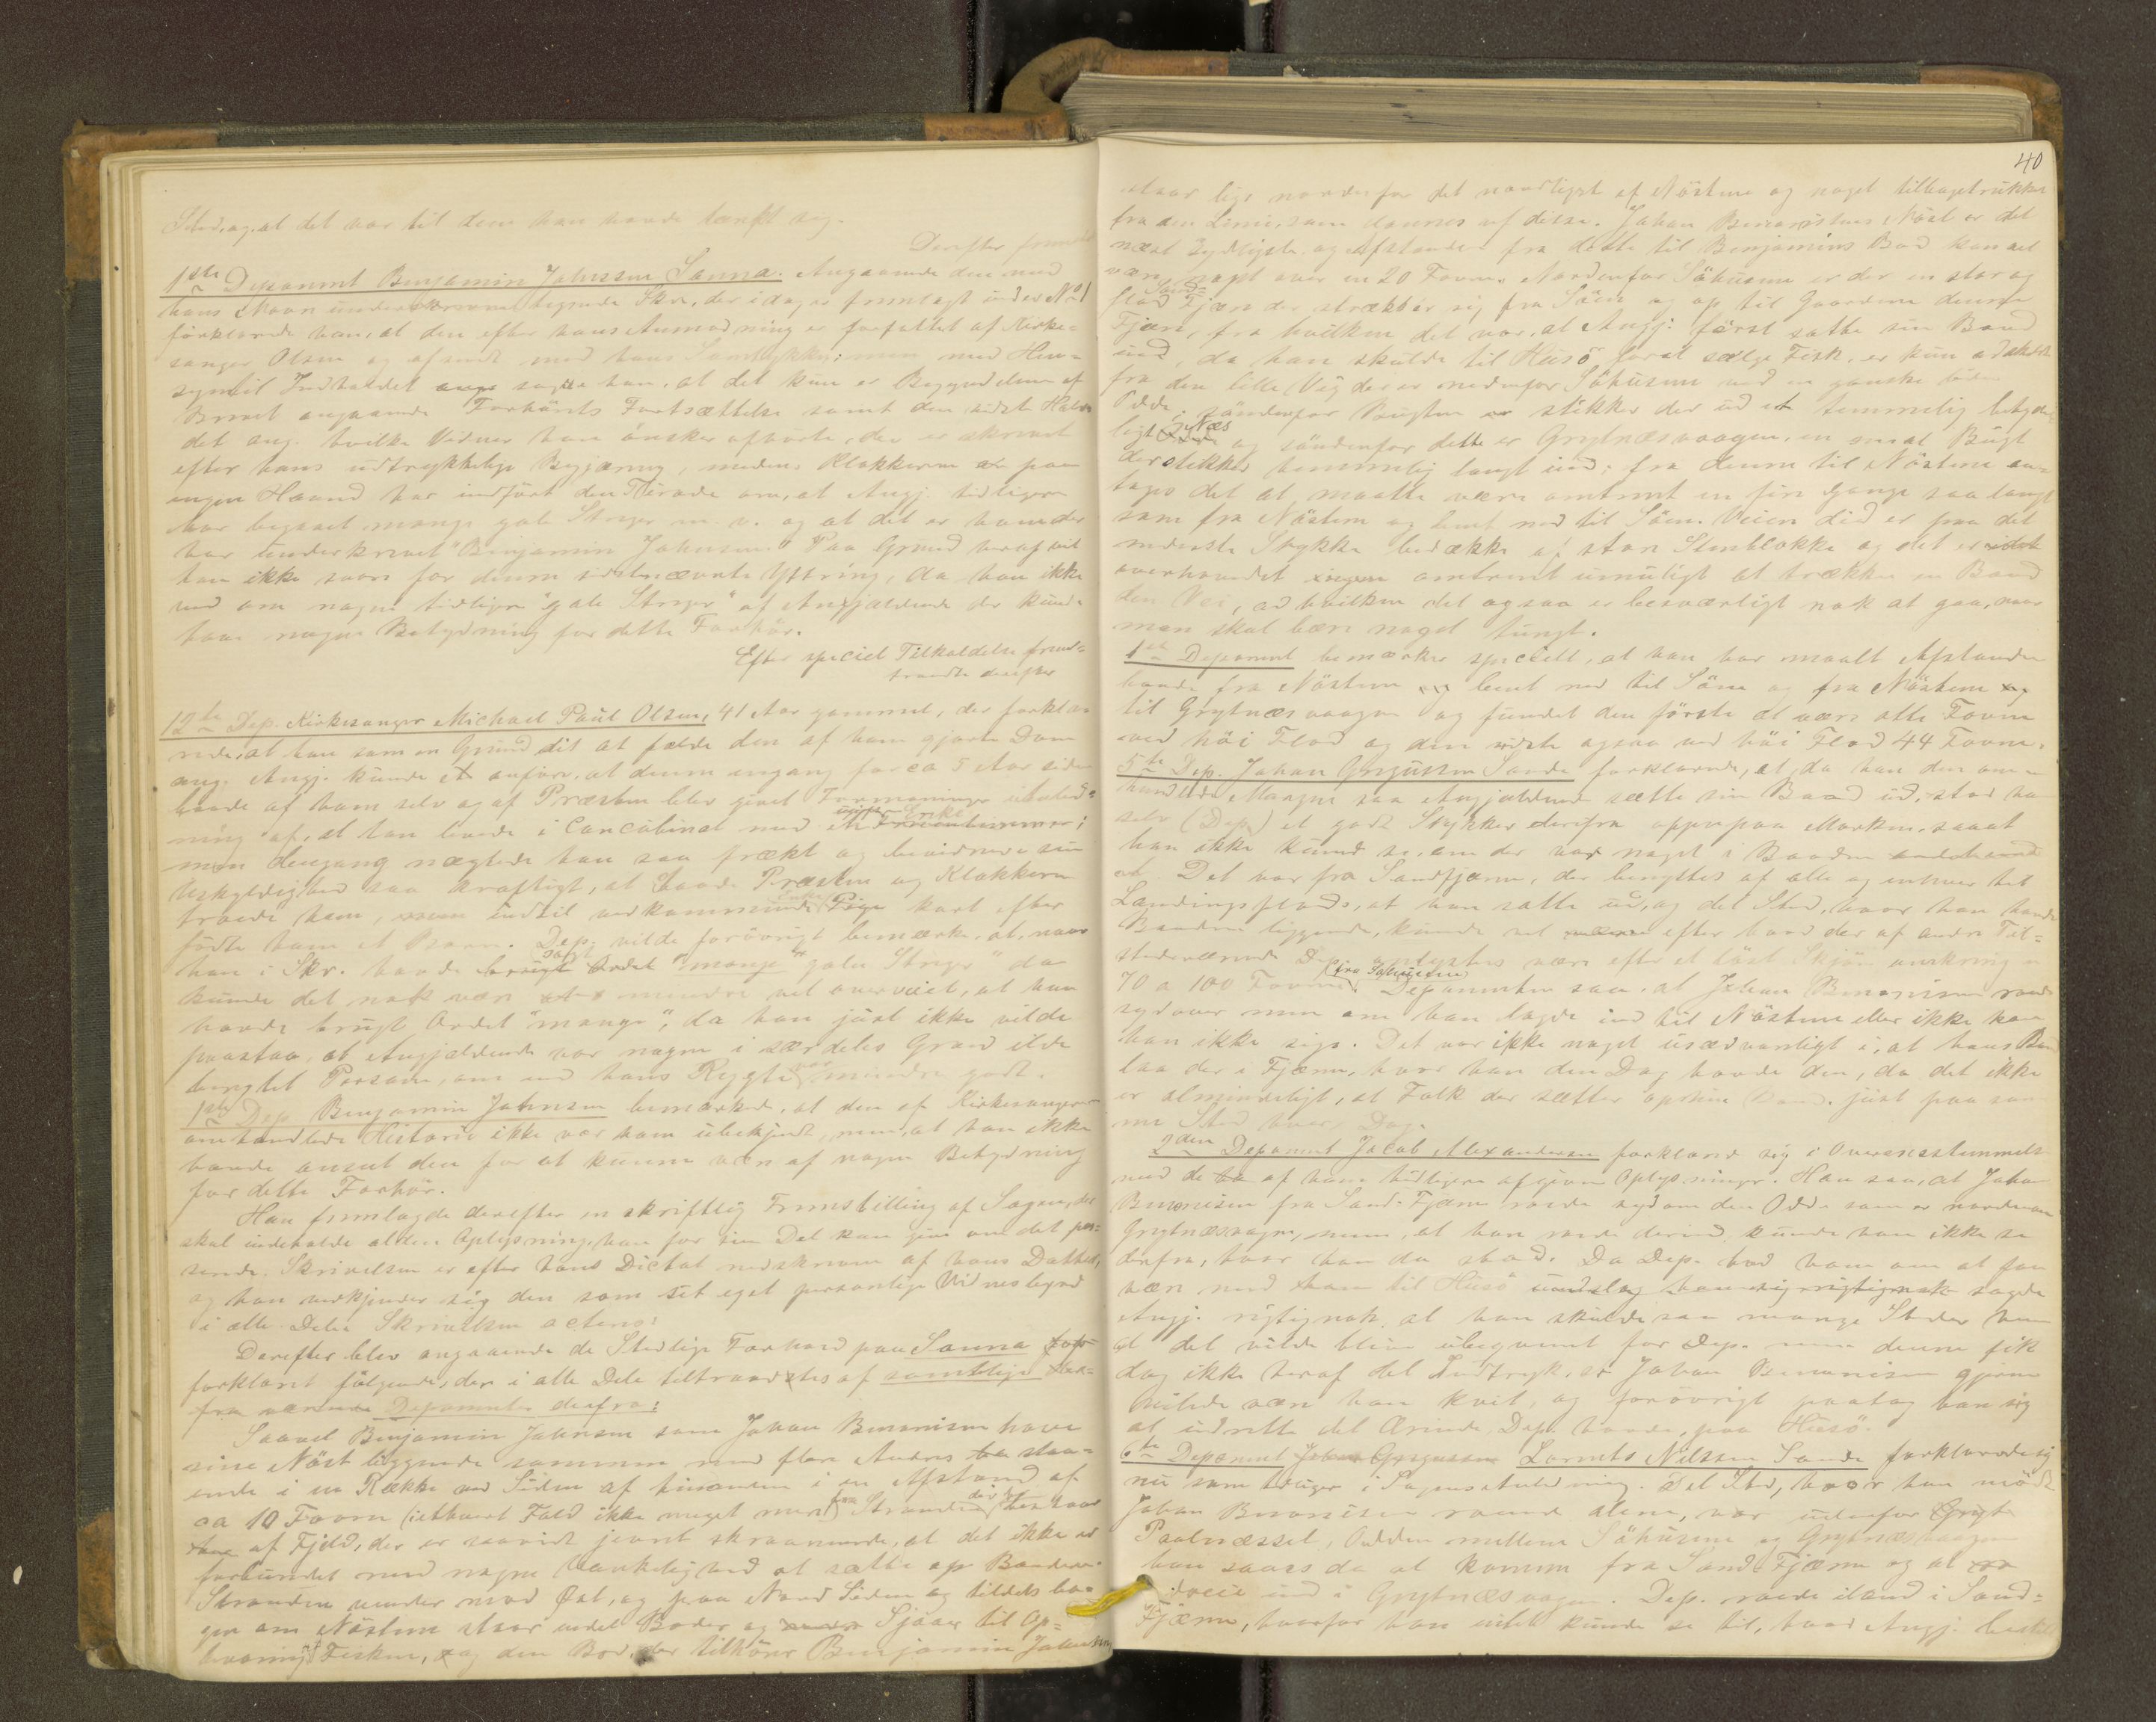 Sted, og at det var til dem han havde tænkt sig.
Derefter
1ste Deponent Benjamin Johnsen Sanna. Angaaende den med
hans Navn Skr., der idag er fremlagt under No 1
forklarede han, at den efter hans Anmodning er forfattet af Kirke-
sanger Olsen og afsendt med hans Samtykke; men med Hen-
syn til Indholdet sagde han, at det kun er Begyndelsen af
Brevet angaaende Forhörets Fortsættelse samt den sidste Halv
det ang. hvilke Vidner han önsker afhörte, der er skrevet
efter hans udtrykkelige Begjæring, medens Klokkeren paa
egen Haand har indfört den Tirade om, at Angj. tidligere
har begaaet mange gale Streger m. v. og at det er ham der
har underskrevet "Benjamin Johnsen". Paa Grund heraf vil
han ikke svare for denne sidstnævnte Yttring, da han ikke
ved om nogen tidligere "gale Streger" af Angjældende der kunde
have nogen Betydning for dette Forhör.
Efter speciel Tilkaldelse frem-
stod derefter
12te Dep. Kirkesanger Michael Paul Olsen, 41 Aar gammel, der forkla-
rede, at han som en Grund dit at fælde den af ham gjorte Dom
ang. Angj. kunde anföre, at denne engang for ca 5 Aar siden
baade af ham selv og af Præsten blev givet Formaninger i Anled-
ning af, at han levde i Concubinat med en Enke;
men dengang nægtede han saa frækt og bevidnede sin
Uskyldighed saa kraftigt, at baade Præsten og Klokkeren
troede ham, indtil vedkommende Enke kort efter
födte ham et Barn. Dep. vilde forövrigt bemærke, at, naar
han i Skr. havde brugt Ordet "mange gale Streger" da
kunde det nok være mindre vel overveiet, at han
havde brugt Ordet "mange", da han just ikke vilde
paastaa, at Angjældende var nogen i særdeles Grad ilde
berygtet Person, om end hans Rygte var mindre godt.
1ste Dep. Benjamin Johnsen bemærkede, at den af Kirkesangeren
omhandlede Historie ikke var ham ubekjendt, men, at han ikke
havde anseet den for at kunne være af nogen Betydning
for dette Forhör.
Han fremlagde derefter en skriftlig Fremstilling af Sagen, der
skal indeholde al den Oplysning, han for sin Del kan give om det pas-
serede. Skrivelsen er efter hans Dictat nedskreven af hans Datter,
og han vedkjender sig den som sit eget personlige Vidnesbyrd
i alle Dele. Skrivelsen acteres:
Derefter blev angaaende de Stedlige Forhold paa Sanna
forklaret fölgende, der i alle Dele tiltraadtes af samtlige
Deponenter derfra:
Saavel Benjamin Johnsen som Johan Benonisen have
sine Nöst liggende sammen med flere Andres staa-
ende i en Række ved Siden af hinanden i en Afstand af
ca 10 Favne (ialtfald Fald ikke meget mere) fra Stranden, der
af Fjeld, der er saavidt jevnt skraanende, at det ikke er
forbundet med nogen Vanskelighed at sætte op Baadene.
Stranden vender mod Öst, og paa Nord Siden og tildels ba-
gen om Nöstene staar endel Boder og Sjaaer til Op-
bevaring af Fisken, og den Bod, der tilhörer Benjamin Johnsen
40
staar lige nordenfor det nordligste af Nöstene og noget tilbagetrukket
fra den Linie, som dannes af disse. Johan Benonisens Nöst er det
næst sydligste og Afstanden fra dette til Benjamins Bod kan vel
være noget over en 20 Favne. Nordenfor Söhusene er der en stor og
flad Sand-Fjære der strækker sig fra Söen og op til Gaardene denne
Fjære, fra hvilken det var, at Angj. först satte sin Baad
ud, da han skulde til Husö forat sælge Fisk, er kun adskilt
fra den lille Vig der er nedenfor Söhusene ved en ganske liden
Odde. söndenfor Bugten stikker der ud et temmelig betyde-
ligt Næs og söndenfor dette er Grytnæsvaagen, en smal Bugt
der stikker temmelig langt ind; fra denne til Nöstene an-
tages det at maatte være omtrent en fire Gange saa langt
som fra Nöstene og bent ned til Söen. Veien did er paa det
nederste Stykke bedækket af store Stenblokke og det er
overhovedet omtrent umuligt at trække en Baad
den Vei, ad hvilken det ogsaa er besværligt nok at gaa, naar
man skal bære noget tungt.
1ste Deponent bemærker specielt, at han har maalt Afstanden
baade fra Nöstene bent ned til Söen og fra Nöstene
til Grytnæsvaagen og fundet den förste at være otte Favne
ved höi Flod og den sidste ogsaa ved höi Flod 44 Favne.
5te Dep. Johan Gregussen Sande forklarede, at da han den om-
handlede Morgen saa Angjældende sætte sin Baad ud, stod han
selv (Dep.) et godt Stykke derifra oppe paa Marken, saaat
han ikke kunde se, om der var noget i Baaden
Det var fra Sandfjæren, der benyttes af alle og enhver til
Landingsplads, at han satte ud, og det Sted, hvor han havde
Baaden liggende, kunde vel efter hvad der af andre Til-
stedeværende oplystes være efter et löst Skjön omkring
70 a 100 Favne fra Söhusene. Deponenten saa, at Johan Benonisen roede
sydover men om han lagde ind til Nöstene eller ikke kan
han ikke sige. Det var ikke noget usædvanligt i, at hans Baad
laa der i Fjæren, hvor han den Dag havde den, da det ikke
er almindeligt, at Folk der sætter op sine Baade just paa sam-
me Sted hver Dag.
2den Deponent Jacob Alexandersen forklarede sig i Overensstemmelse
med de af ham tidligere afgivne Oplysninger. Han saa, at Johan
Benonisen fra Sand-Fjæren roede syd om den Odde som er nordenom
Grytnæsvaagen, men, at han roede derind, kunde han ikke se
derfra, hvor han da stod. Da Dep. bad ham om at faa
være med ham til Husö sagde
Angj. rigtignok, at han skulde saa mange Steder hen
at det vilde blive ubeqvemt for Dep. men denne fik
dog ikke heraf det Indtryk, at Johan Benonisen gjerne
vilde være ham kvit, og forövrigt paatog han sig
at udrette det Ærinde, Dep. havde paa Husö.
6te Deponent Lorents Nilssen Sande forklarede sig
nu som tidliger i Sagens Anledning. Det Sted, hvor han mödte
Johan Benonisen roende alene, var udenfor
Paalnæsset, Odden mellem Söhusene og Grytnæsvaagen
han saaes da at komme fra Sand-Fjæren og at
dreie ind i Grytnæsvaagen. Dep. roede iland i Sand-
Fjæren, hvorfor han intet kunde se til, hvad Angj. bestilte